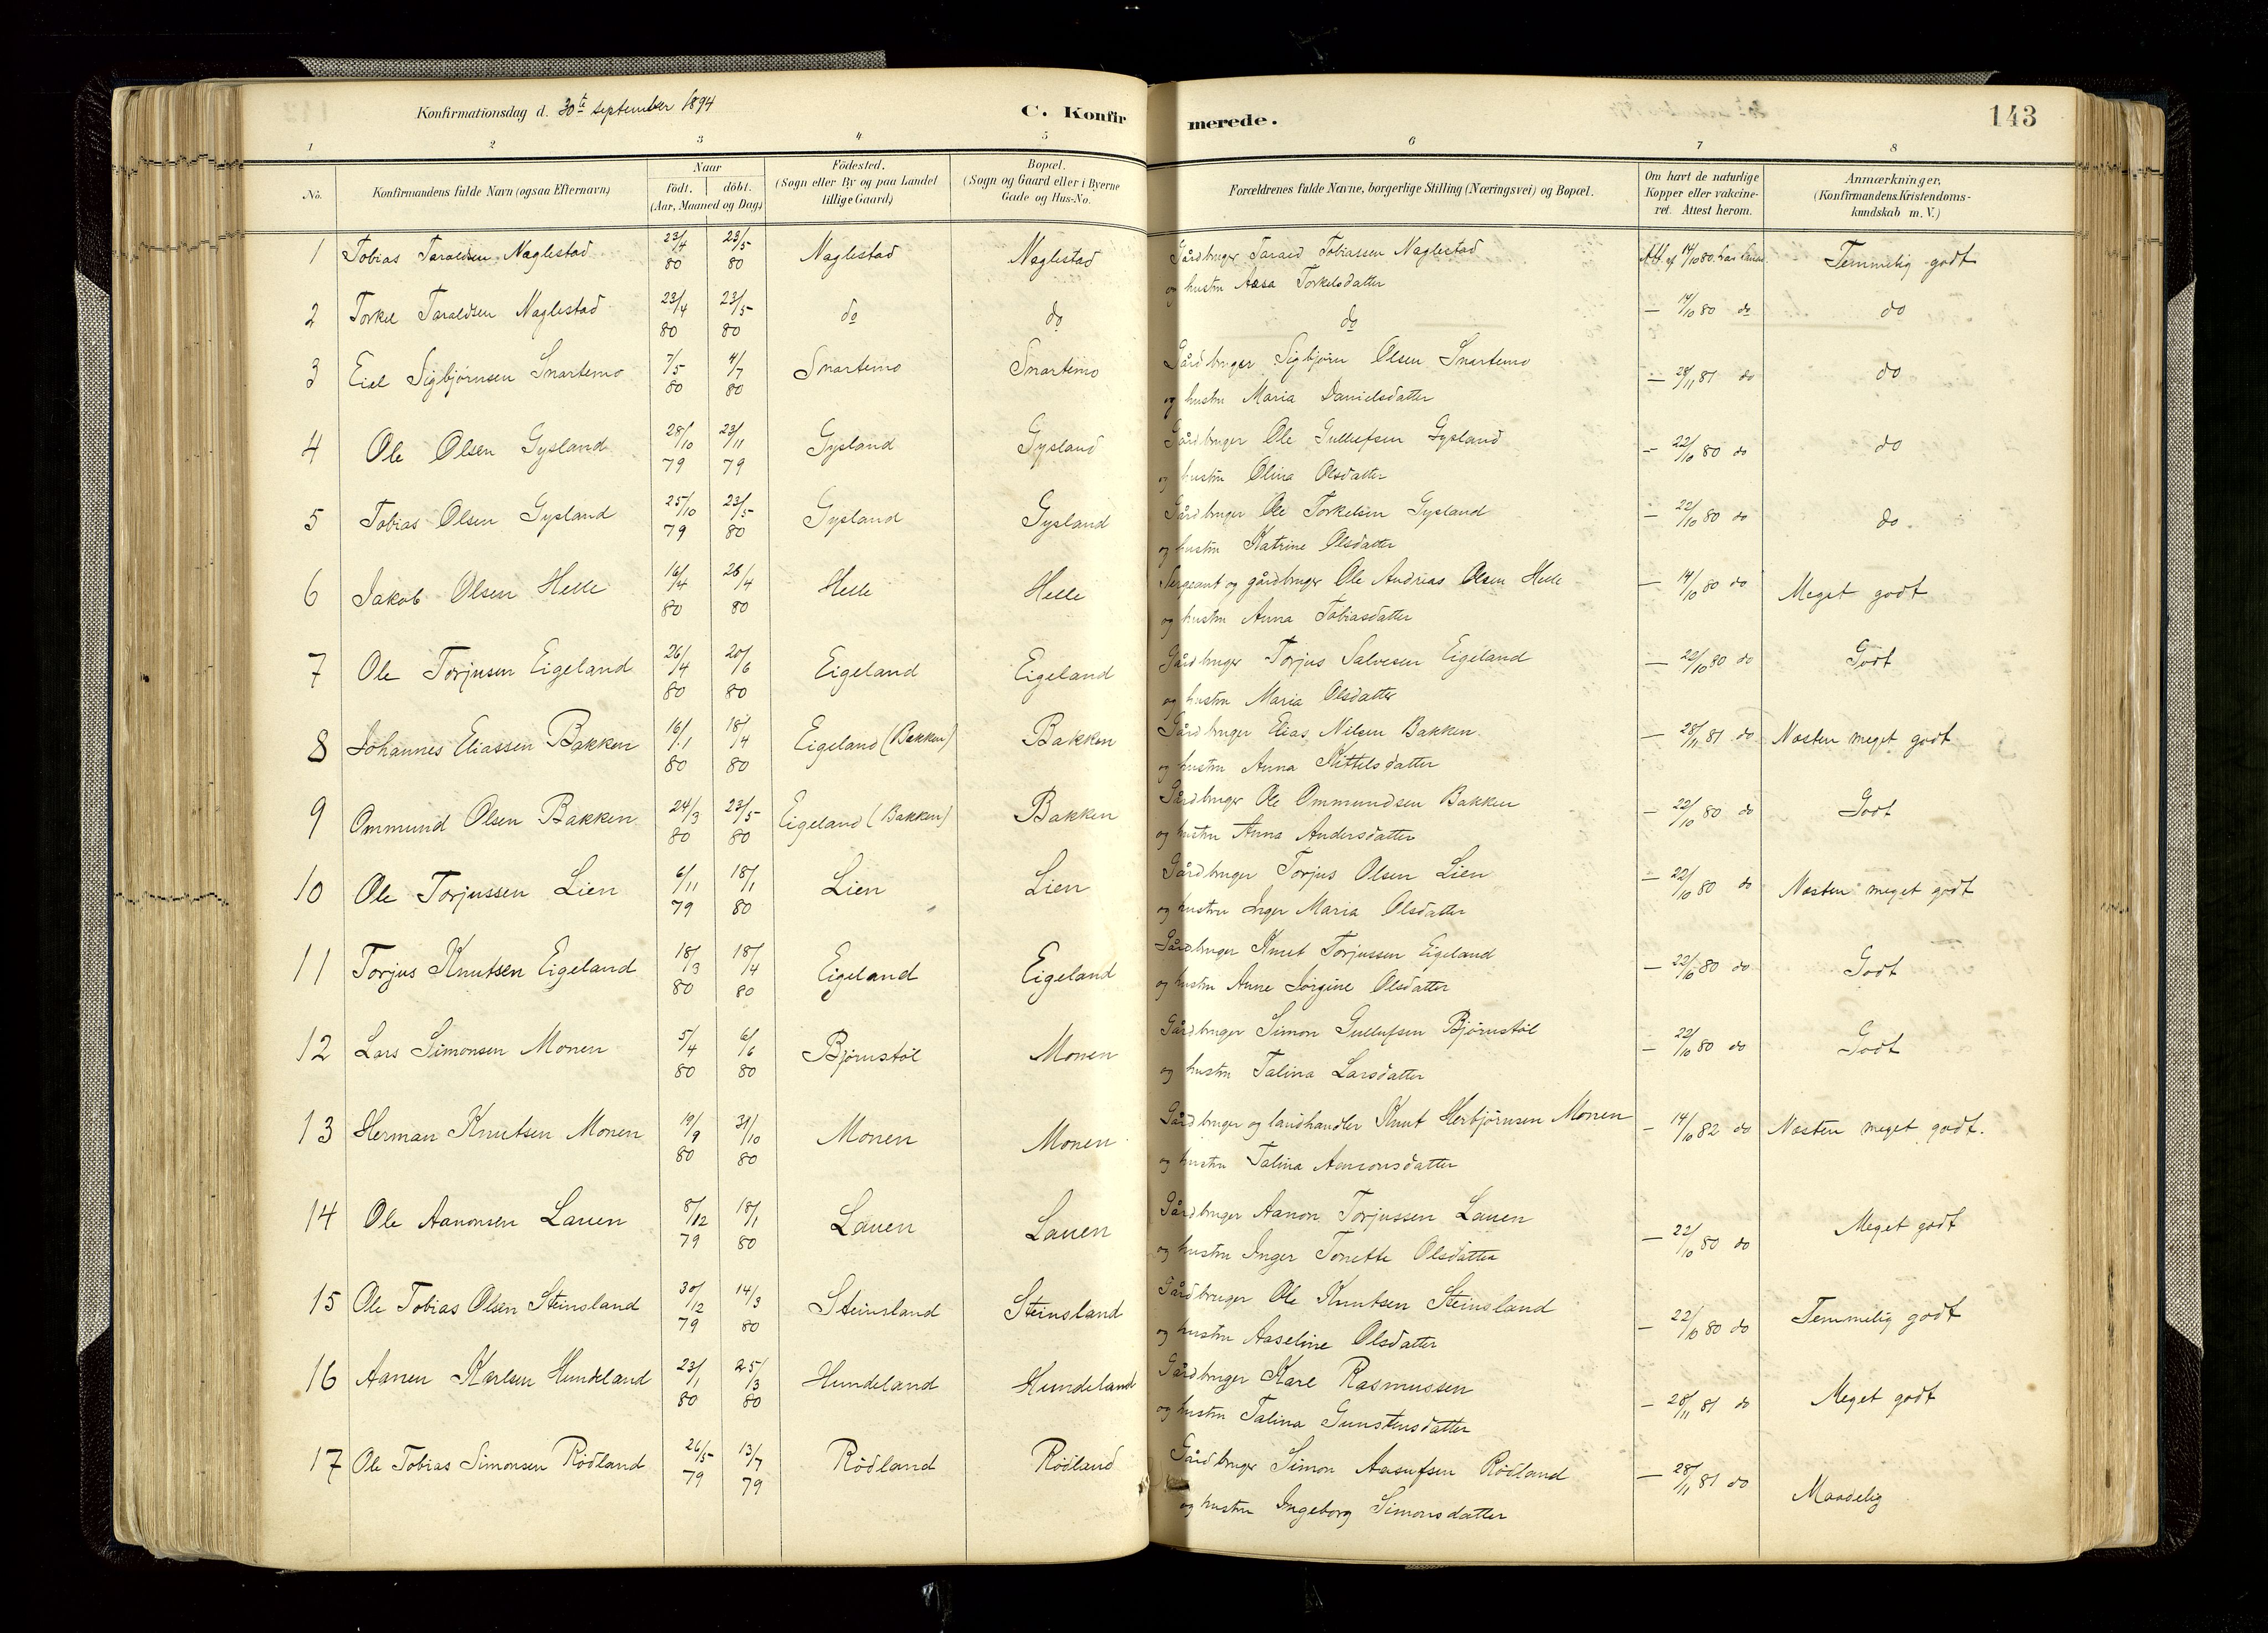 Konfirmationsdag d. 30te september 1894
C. Konfirmerede.
143
1 2 3 4 5 6 7 8
No.
Konfirmandens fulde Navn (ogsaa Efternavn)
Naar
födt. döbt.
(Aar, Maaned og Dag)
Födested.
(Sogn eller By og paa Landet
tillige Gaard)
Bopæl.
(Sogn og Gaard eller i Byerne
Gade og Hus-No.
Forældrenes fulde Navne, borgerlige Stilling (Næringsvei) og Bopæl.
Om havt de naturlige
Kopper eller vakcine-
ret. Attest herom.
Anmærkninger,
(Konfirmandens Kristendoms-
kundskab m. V.)
1 Tobias Taraldsen Naglestad 23/4 80 23/5 80 Naglestad Naglestad Gårdbruger Tarald Tobiassen Naglestad Att. af 14/10 80. Temmelig godt
og hustru Aasa Torkelsdatter
2 Torkel Taraldsen Naglestad 23/4 80 23/5 80 do do do — 14/10 80 do do
3 Eiel Sigbjørnsen Snartemo 7/5 80 4/7 80 Snartemo Snartemo Gårdbruger Sigbjørn Olsen Snartemo — 28/11 81 do do
og hustru Maria Danielsdatter
4 Ole Olsen Gysland 28/10 79 23/11 79 Gysland Gysland Gårdbruger Ole Gullufsen Gysland — 22/10 80 do do
og hustru Olina Olsdatter
5 Tobias Olsen Gysland 25/10 79 23/5 80 Gysland Gysland Gårdbruger Ole Torkelsen Gysland — 22/10 80 do do
og hustru Katrine Olsdatter
6 Jakob Olsen Helle 16/4 80 26/4 80 Helle Helle Sergeant og gårdbruger Ole Andrias Olsen Helle — 14/10 80 do Meget godt
og hustru Anna Tobiasdatter
7 Ole Torjusen Eigeland 26/4 80 20/6 80 Eigeland Eigeland Gårdbruger Torjus Salvesen Eigeland — 22/10 80 do Godt
og hustru Maria Olsdatter
8 Johannes Eliassen Bakken 16/1 80 18/4 80 Eigeland (Bakken) Bakken Gårdbruger Elias Nilsen Bakken — 28/11 81 do Næsten meget godt
og hustru Anna Kittelsdatter
9 Ommund Olsen Bakken 24/3 80 23/5 80 Eigeland (Bakken) Bakken Gårdbruger Ole Ommundsen Bakken — 22/10 80 do Godt
og hustru Anna Andersdatter
10 Ole Torjussen Lien 6/11 79 18/1 80 Lien Lien Gårdbruger Torjus Olsen Lien — 22/10 80 do Næsten meget godt
og hustru Inger Maria Olsdatter
11 Torjus Knutsen Eigeland 18/3 80 18/4 80 Eigeland Eigeland Gårdbruger Knut Torjussen Eigeland — 22/10 80 do Godt
og hustru Anne Jorgine Olsdatter
12 Lars Simonsen Monen 5/4 80 6/6 80 Bjørnstøl Monen Gårdbruger Simon Gullufsen Bjørnstøl — 22/10 80 do Godt
og hustru Talina Larsdatter
13 Herman Knutsen Monen 19/9 80 31/10 80 Monen Monen Gårdbruger og landhandler Knut Herbjørnsen Monen — 14/10 82 do Næsten meget godt.
og hustru Talina Aanonsdatter
14 Ole Aanonsen Lauen 8/12 79 18/1 80 Lauen Lauen Gårdbruger Aanon Torjussen Lauen — 22/10 80 do Meget godt
og hustru Inger Tonette Olsdatter
15 Ole Tobias Olsen Steinsland 30/12 79 14/3 80 Steinsland Steinsland Gårdbruger Ole Knutsen Steinsland — 22/10 80 do Temmelig godt
og hustru Aaseline Olsdatter
16 Aanen Karlsen Hundeland 23/1 80 25/3 80 Hundeland Hundeland Gårdbruger Karl Rasmussen — 28/11 81 do Meget godt
og hustru Talina Gunstensdatter
17 Ole Tobias Simonsen Rödland 26/5 79 13/7 79 Rödland Rödland Gårdbruger Simon Aasufsen Rödland — 28/11 81 do Maadelig
og hustru Ingeborg Simonsdatter